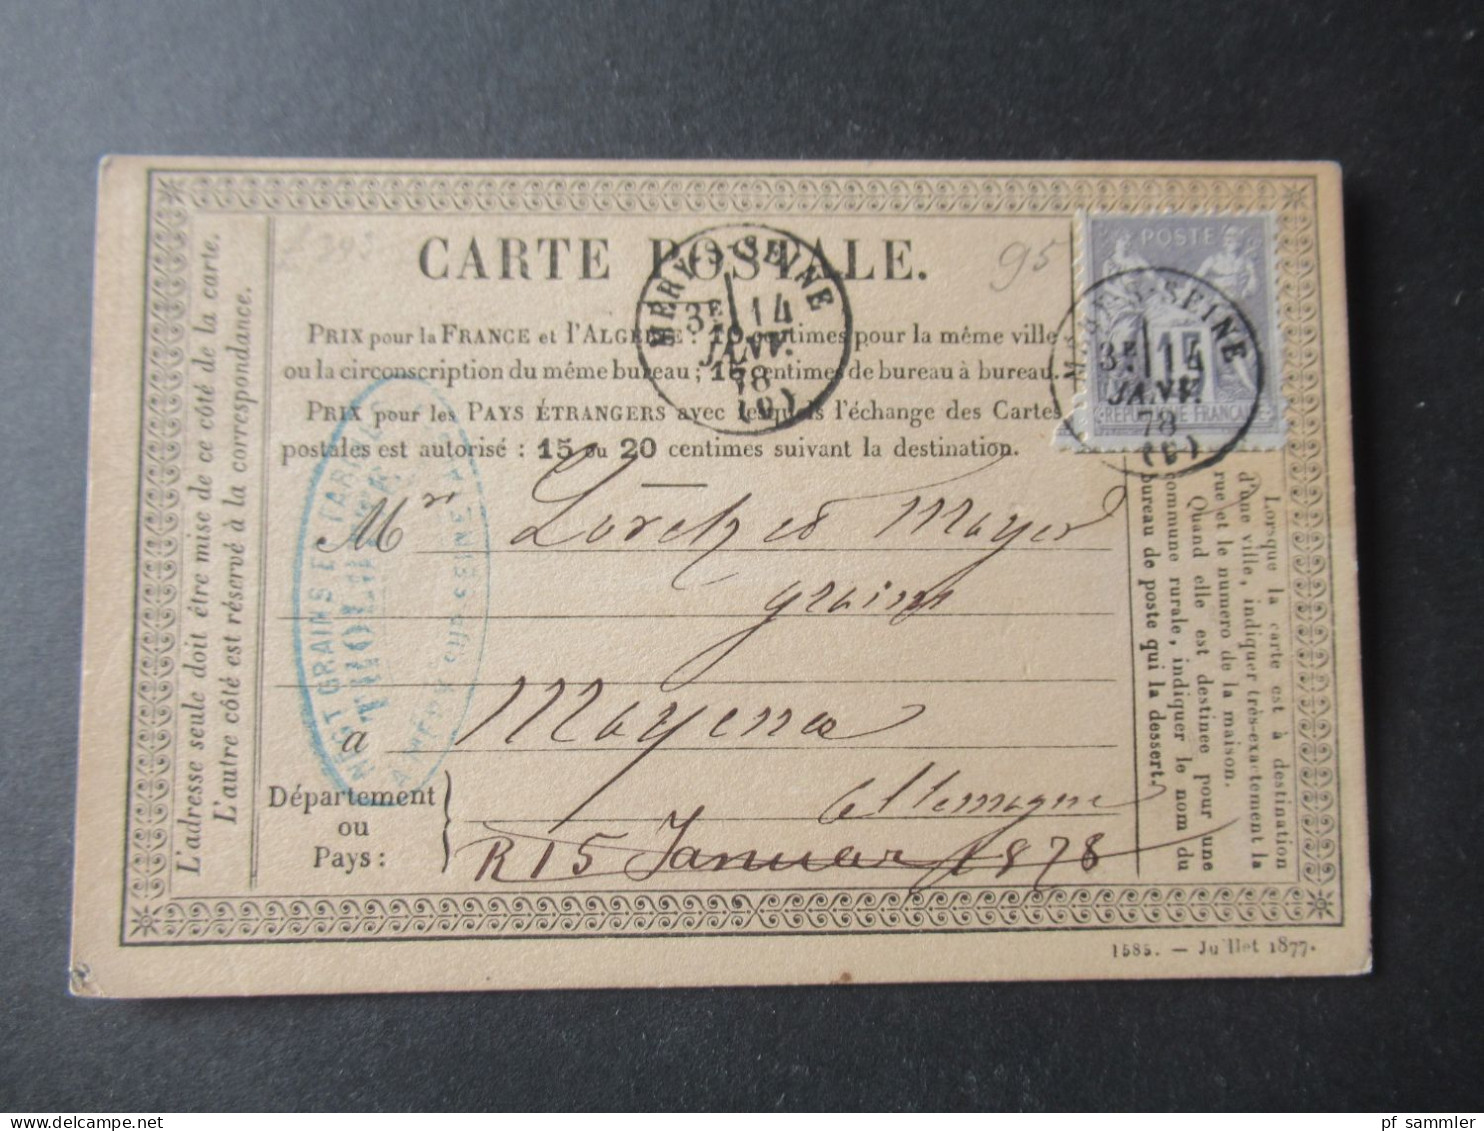 L'adresse seule doit être mise de ce côté de la carte.
L'autre côté est réservé à la correspondance.
CARTE POSTALE.
95
PRIX pour la FRANCE et l'ALGÉRIE : 10 centimes pour la même ville
ou la circonscription du même bureau ; 15 centimes de bureau à bureau.
PRIX pour les PAYS ÉTRANGERS avec lesquels l'échange des Cartes
postales est autorisé : 15 ou 20 centimes suivant la destination.
MÉRY-S-SEINE
3E 14
JANV.
78
(9)
POSTE
15
REPUBLIQUE FRANCAISE
MÉRY-S-SEINE
3E 14
JANV.
78
NÉGT GRAINS & FARINES
Mr Loretz et Mayer
grains
a Mayence
Département
ou
Pays :
Allemagne
R 15 Januar 1878
Lorsque la carte est à destination
d'une ville, indiquer très-exactement la
rue et le numero de la maison.
Quand elle est destinée pour une
commune rurale, indiquer le nom du
bureau de poste qui la dessert.
1585. — Juillet 1877.
pf_sammler